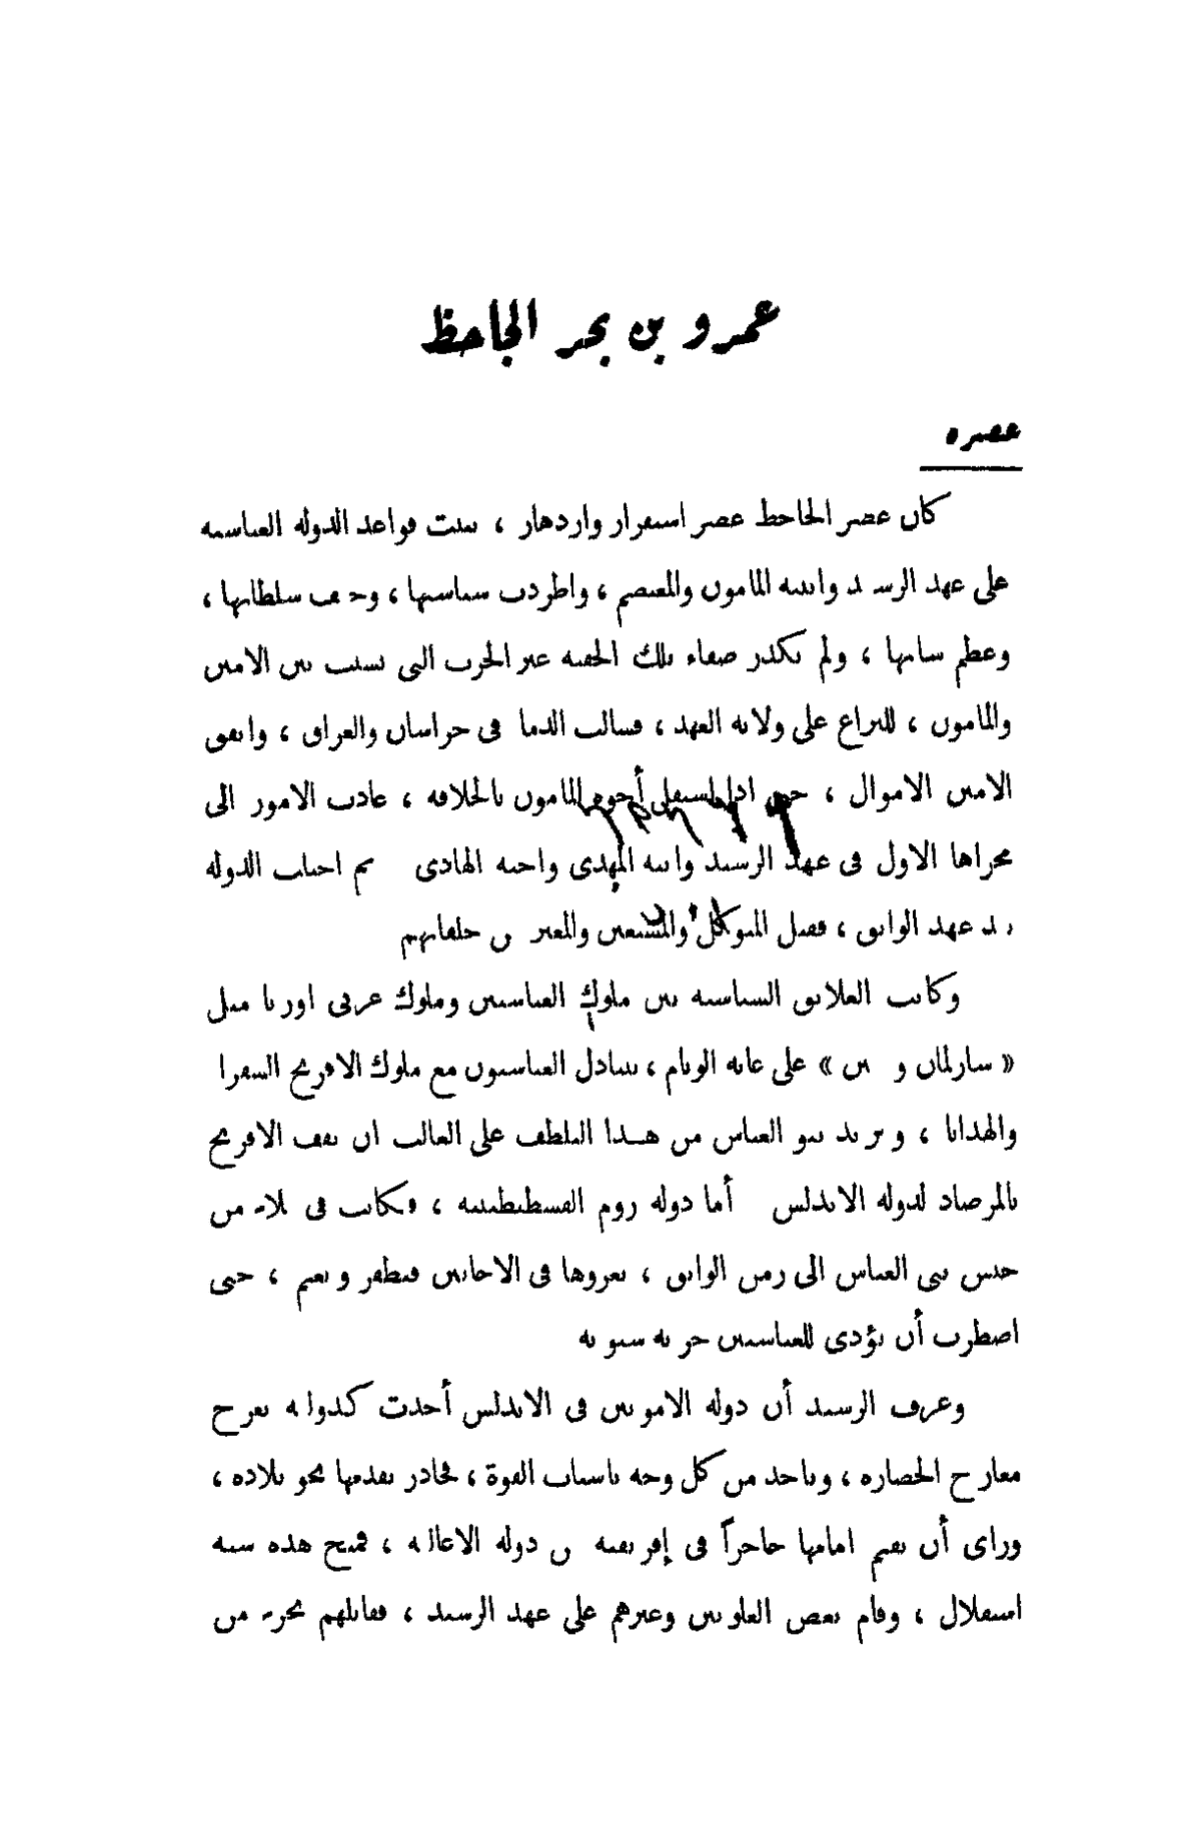 عمرو بن بحر الجاحظ
عصره
كان عصر الجاحظ عصر استقرار وازدهار ، ثبتت قواعد الدولة العباسية
على عهد الرشيد وابنيه المأمون والمعتصم ، واطردت سياستها ، وخيف سلطانها ،
وعظم شأنها ، ولم يكدر صفاء تلك الحقبة غير الحرب التي نشبت بين الامين
والمأمون ، للنزاع على ولاية العهد ، فسالت الدما في خراسان والعراق ، وانفق
الامين الاموال ، حتى اذا استقل أخوه المأمون بالخلافة ، عادت الامور الى
مجراها الاول في عهد الرشيد وابيه المهدي واخيه الهادي ثم اجتاب الدولة
عهد الواثق ، فقتل المتوكل والمستعين والمعتز من خلفائهم
وكانت العلائق السياسية بين ملوك العباسيين وملوك غربي اوربا مثل
« شارلمان و » على غاية الوئام ، يتبادل العباسيون مع ملوك الافرنج السفرا
والهدايا ، ويريد بنو العباس من هذا التلطف على الغالب ان يقف الافرنج
بالمرصاد لدولة الاندلس أما دولة روم القسطنطينية ، فكانت في من
جيش بني العباس الى زمن الواثق ، يغزوها في الاحايين فيظفر ويغنم ، حتى
اضطرت أن تؤدي للعباسيين جزية سنوية
وعرف الرشيد أن دولة الامويين في الاندلس أخذت كدولته تعرج
معارج الحضارة ، وتأخذ من كل وجه باسباب القوة ، فحاذر تقدمها نحو بلاده ،
ورأى أن يقيم امامها حاجزاً في إفريقية من دولة الاغالبة ، فمنح هذه شبه
استقلال ، وقام بعض العلويين وغيرهم على عهد الرشيد ، فقاتلهم بحزم من